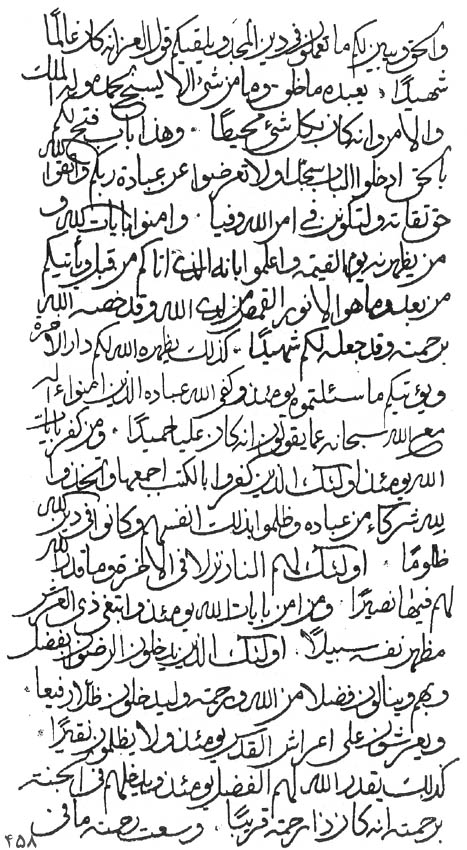 والحق ويبين لكم ما تعملون في دين المجد ويلقيكم قول العز انه كان عالما
شهيدا . يعبده ما خلق وما من شئ الا يسبح بحمده وله الملك
والامر وانه كان بكل شئ محيطا . وهذا باب فتح لكم
بالحق ادخلوا الباب سجدا ولا تعرضوا عن عبادة ربكم واتقوا لله
حق تقاته ولتكونن في امر الله وفيا . وامنوا بايات لله و
من يظهرنه يوم القيمة واعلموا بانه الذي اتاكم من قبل ويأتيكم
من بعد وما هو الا نور من لدى الله وقد خصه الله
برحمته وقد جعله لكم شهيدا . كذلك يظهره الله لكم دار الاخرة
ويؤتيكم ما سئلتموه يومئذ وكفى الله عباده الذين امنوا
مع الله سبحانه عما يقولون انه كان عليا حميدا . ومن كفر بايات
الله يومئذ اولئك الذين كفروا بالكتب اجمعها واتخذوا
لله شركاء من عباده وظلموا بذلك انفسهم وكانوا في دين لله
ظلوما . اولئك لهم النار نزلا في الاخرة وما قدر لله
لهم فيها نصيرا . ومن امن بايات الله يومئذ وابتغى ذي العرش
مظهر نفسه سبيلا . اولئك الذين يدخلون الرضوان بفضل
ربهم وينالون فضلا من الله ورحمته وليدخلون ظلا رفيعا .
ويعرشون على اعراش القدس يومئذ ولا يظلمون نقيرا .
كذلك يقدر الله لهم الفضل يومئذ ويدخلهم في الجنة
برحمته انه كان ذا رحمة قريبا . وسعت رحمته ما في
۴۵۸